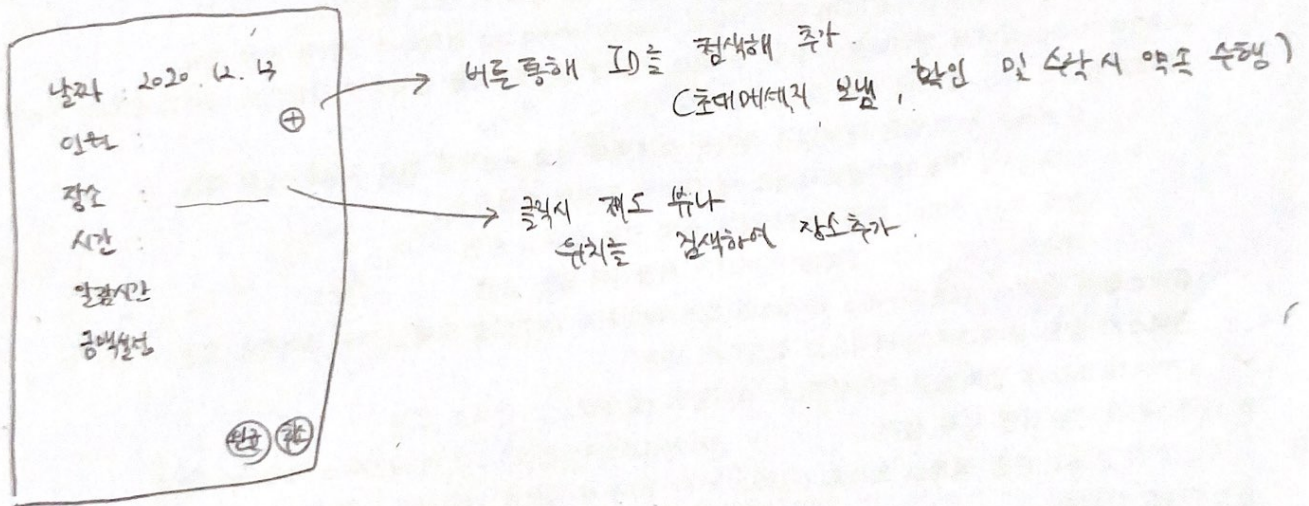 날짜 : 2020. 12. 13
인원 :
장소 :
시간 :
알람시간
금액설정
완료 취소
버튼 통해 ID를 검색해 추가.
(초대메세지 보냄, 확인 및 수락시 약속 수행)
클릭시 지도 뷰나
위치를 검색하여 장소추가.